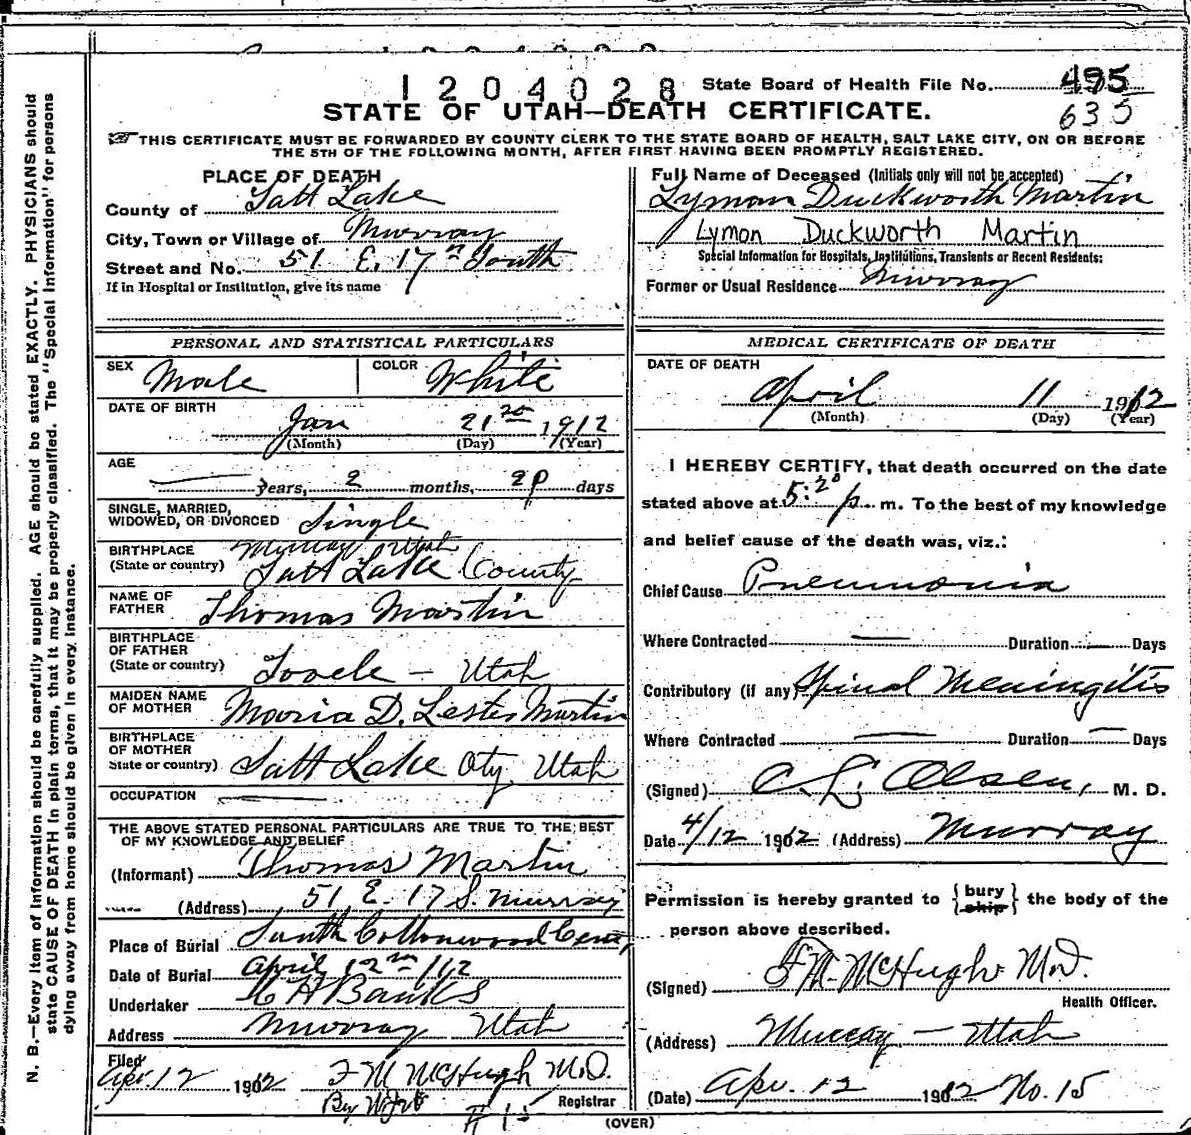 1204028 State Board of Health File No. 495
635
STATE OF UTAH—DEATH CERTIFICATE.
THIS CERTIFICATE MUST BE FORWARDED BY COUNTY CLERK TO THE STATE BOARD OF HEALTH, SALT LAKE CITY, ON OR BEFORE
THE 5TH OF THE FOLLOWING MONTH, AFTER FIRST HAVING BEEN PROMPTLY REGISTERED.
PLACE OF DEATH
County of Salt Lake
City, Town or Village of Murray
Street and No. 51 E. 17th South
If in Hospital or Institution, give its name
Full Name of Deceased (Initials only will not be accepted)
Lyman Duckworth Martin
Lymon Duckworth Martin
Special Information for Hospitals, Institutions, Transients or Recent Residents:
Former or Usual Residence Murray
PERSONAL AND STATISTICAL PARTICULARS
SEX Male COLOR White
DATE OF BIRTH
Jan 21 1912
(Month) (Day) (Year)
AGE
years, 2 months, days
SINGLE, MARRIED,
WIDOWED, OR DIVORCED Single
BIRTHPLACE Murray Utah
(State or country) Salt Lake County
NAME OF
FATHER Thomas Martin
BIRTHPLACE
OF FATHER
(State or country) Tooele — Utah
MAIDEN NAME
OF MOTHER Maria D. Lester Martin
BIRTHPLACE
OF MOTHER
State or country) Salt Lake City Utah
OCCUPATION
THE ABOVE STATED PERSONAL PARTICULARS ARE TRUE TO THE BEST
OF MY KNOWLEDGE AND BELIEF
(Informant) Thomas Martin
(Address) 51 E. 17 S. Murray
Place of Burial South Cottonwood Cem,
Date of Burial April 12 1912
Undertaker Banks
Address Murray Utah
Filed
Apr. 12 1912 F M McHugh M.D.
By Registrar
# 15
MEDICAL CERTIFICATE OF DEATH
DATE OF DEATH
April 11 1912
(Month) (Day) (Year)
I HEREBY CERTIFY, that death occurred on the date
stated above at 5:20 p. m. To the best of my knowledge
and belief cause of the death was, viz.:
Chief Cause Pneumonia
Where Contracted — Duration — Days
Contributory (if any) Spinal Meningitis
Where Contracted — Duration — Days
(Signed) C. L. Olsen, M. D.
Date 4/12 1912 (Address) Murray
Permission is hereby granted to {bury
ship} the body of the
person above described.
(Signed) F M. McHugh M.D.
Health Officer.
(Address) Murray — Utah
(Date) Apr. 12 1912 No. 15
(OVER)
N. B.—Every item of information should be carefully supplied. AGE should be stated EXACTLY. PHYSICIANS should
state CAUSE OF DEATH in plain terms, that it may be properly classified. The "Special Information" for persons
dying away from home should be given in every instance.